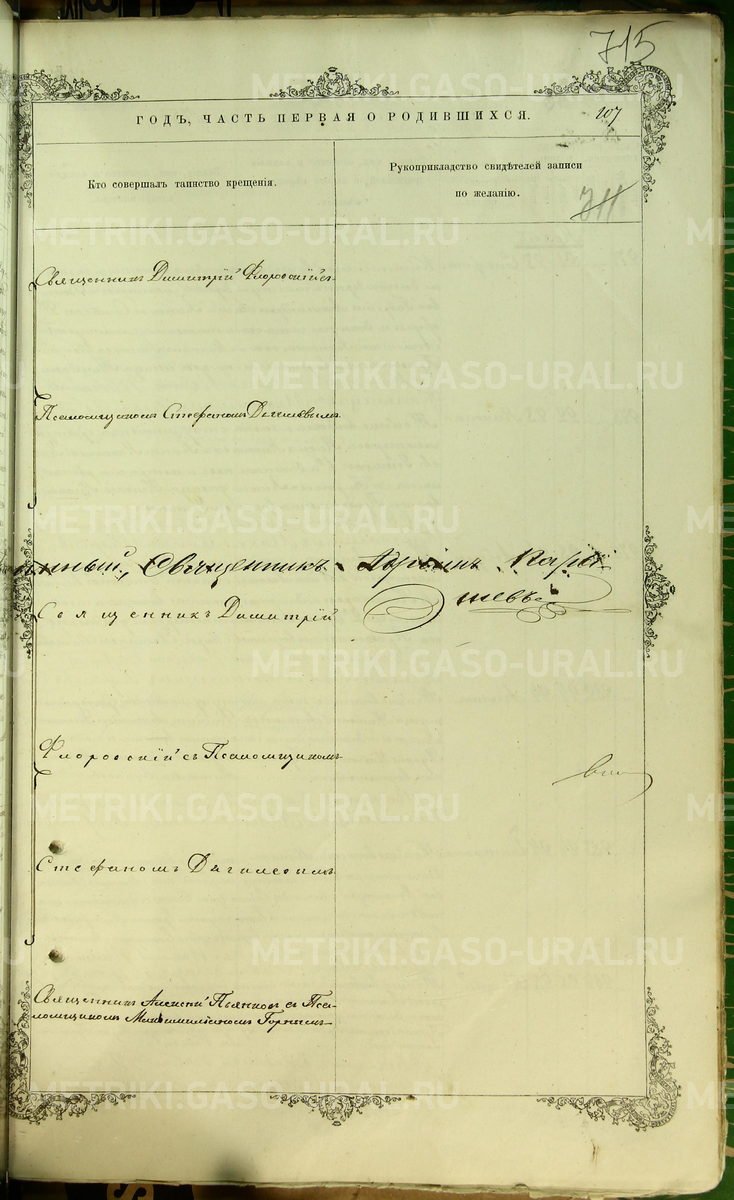 715
ГОДЪ, ЧАСТЬ ПЕРВАЯ О РОДИВШИХСЯ.
207
Кто совершалъ таинство крещенія.
Рукоприкладство свидѣтелей записи
по желанію.
711
Священникъ Димитрій Флоровскій съ
Псаломщикомъ Стефаномъ Дягилевымъ
Священникъ
Священникъ Димитрій
Флоровскій съ Псаломщикомъ
Стефаномъ Дягилевымъ
Священникъ Алексѣй Пьянковъ съ Пса-
ломщикомъ Максимиліаномъ Горнымъ
METRIKI.GASO-URAL.RU